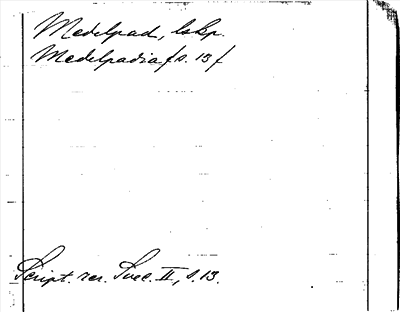 Medelpad, lskp.
Medelpadia /s. 13/
Script. rer. Svec. II, s. 13.